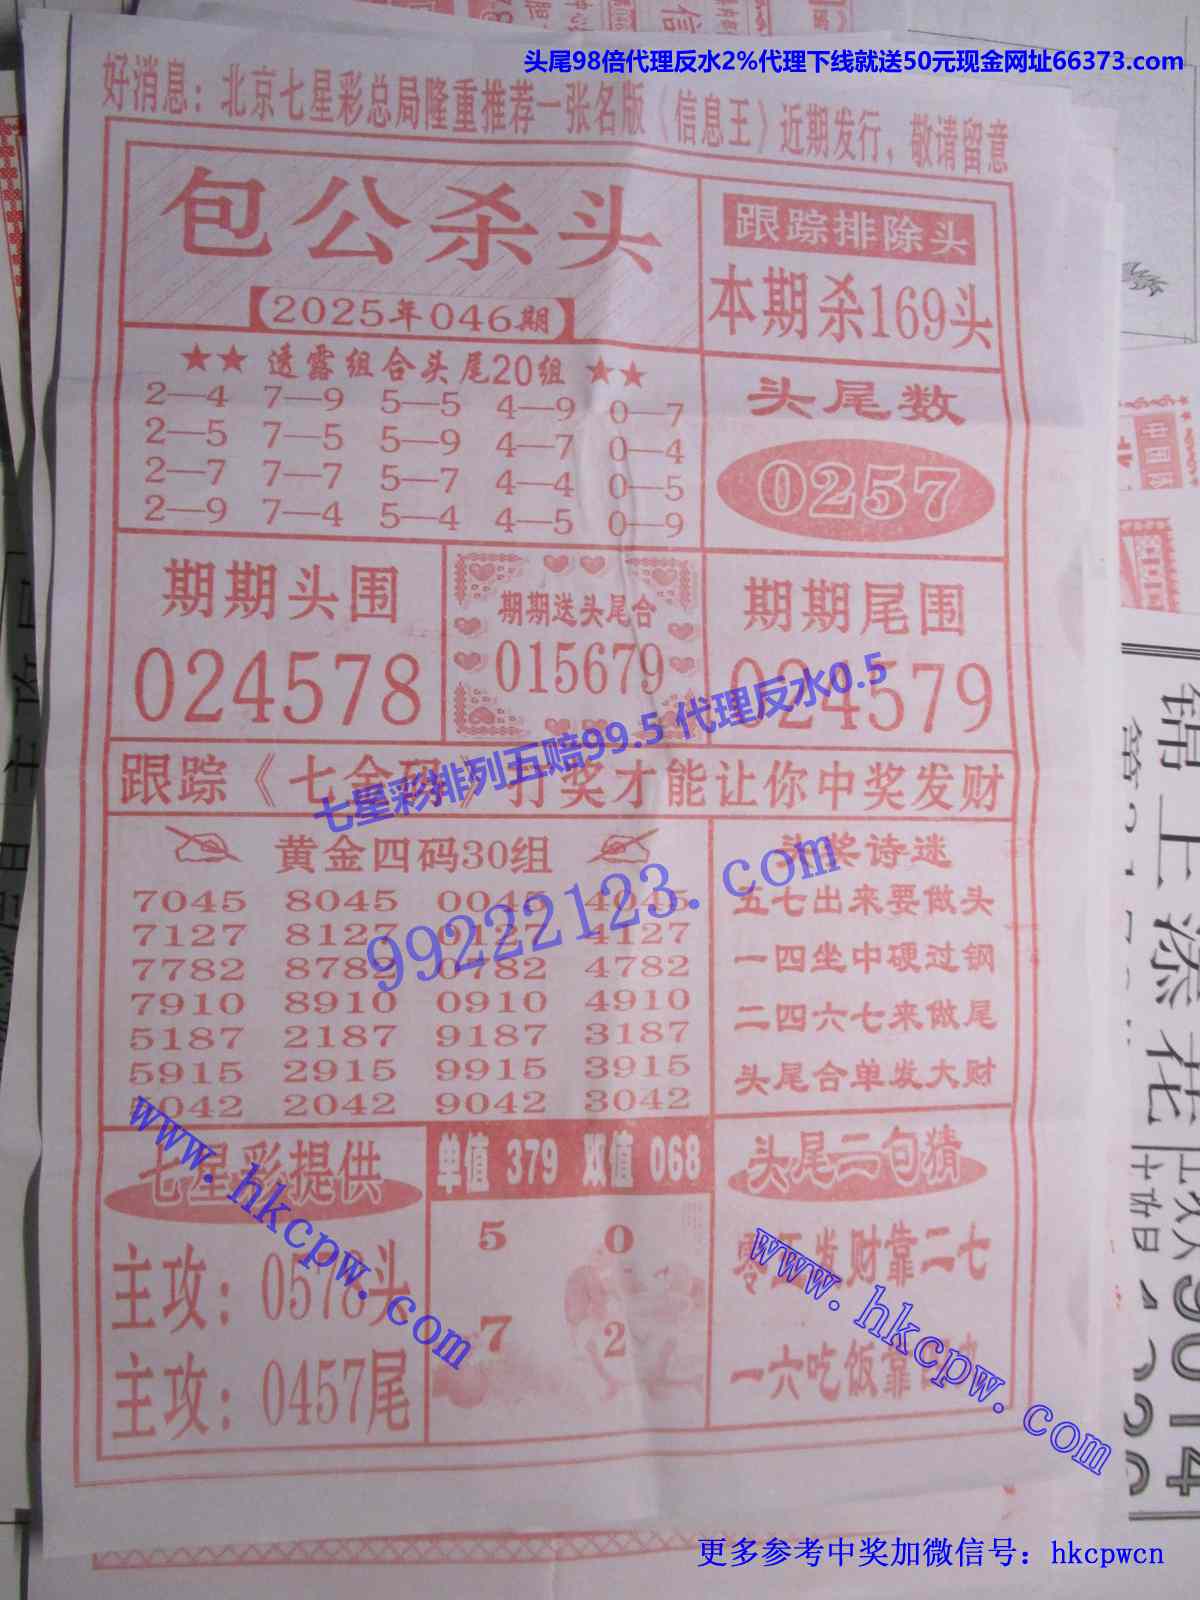 头尾98倍代理反水2%代理下线就送50元现金网址66373.com
好消息：北京七星彩总局隆重推荐一张名版《信息王》近期发行，敬请留意
包公杀头
【2025年046期】
跟踪排除头
本期杀169头
★★ 透露组合头尾20组 ★★
2—4 7—9 5—5 4—9 0—7
2—5 7—5 5—9 4—7 0—4
2—7 7—7 5—7 4—4 0—5
2—9 7—4 5—4 4—5 0—9
头尾数
0257
期期头围
024578
期期送头尾合
015679
期期尾围
024579
七星彩排列五赔99.5 代理反水0.5
跟踪《七金码》打奖才能让你中奖发财
黄金四码30组
7045 8045 0045 4045
7127 8127 0127 4127
7782 8782 0782 4782
7910 8910 0910 4910
5187 2187 9187 3187
5915 2915 9915 3915
5042 2042 9042 3042
99222123.com
头奖诗迷
五七出来要做头
一四坐中硬过钢
二四六七来做尾
头尾合单发大财
七星彩提供
主攻：0578头
主攻：0457尾
www.hkcpw.com
单值 379 双值 068
5 0
7 2
头尾二句猜
零五发财靠二七
一六吃饭靠
www.hkcpw.com
更多参考中奖加微信号：hkcpwcn
锦上添花